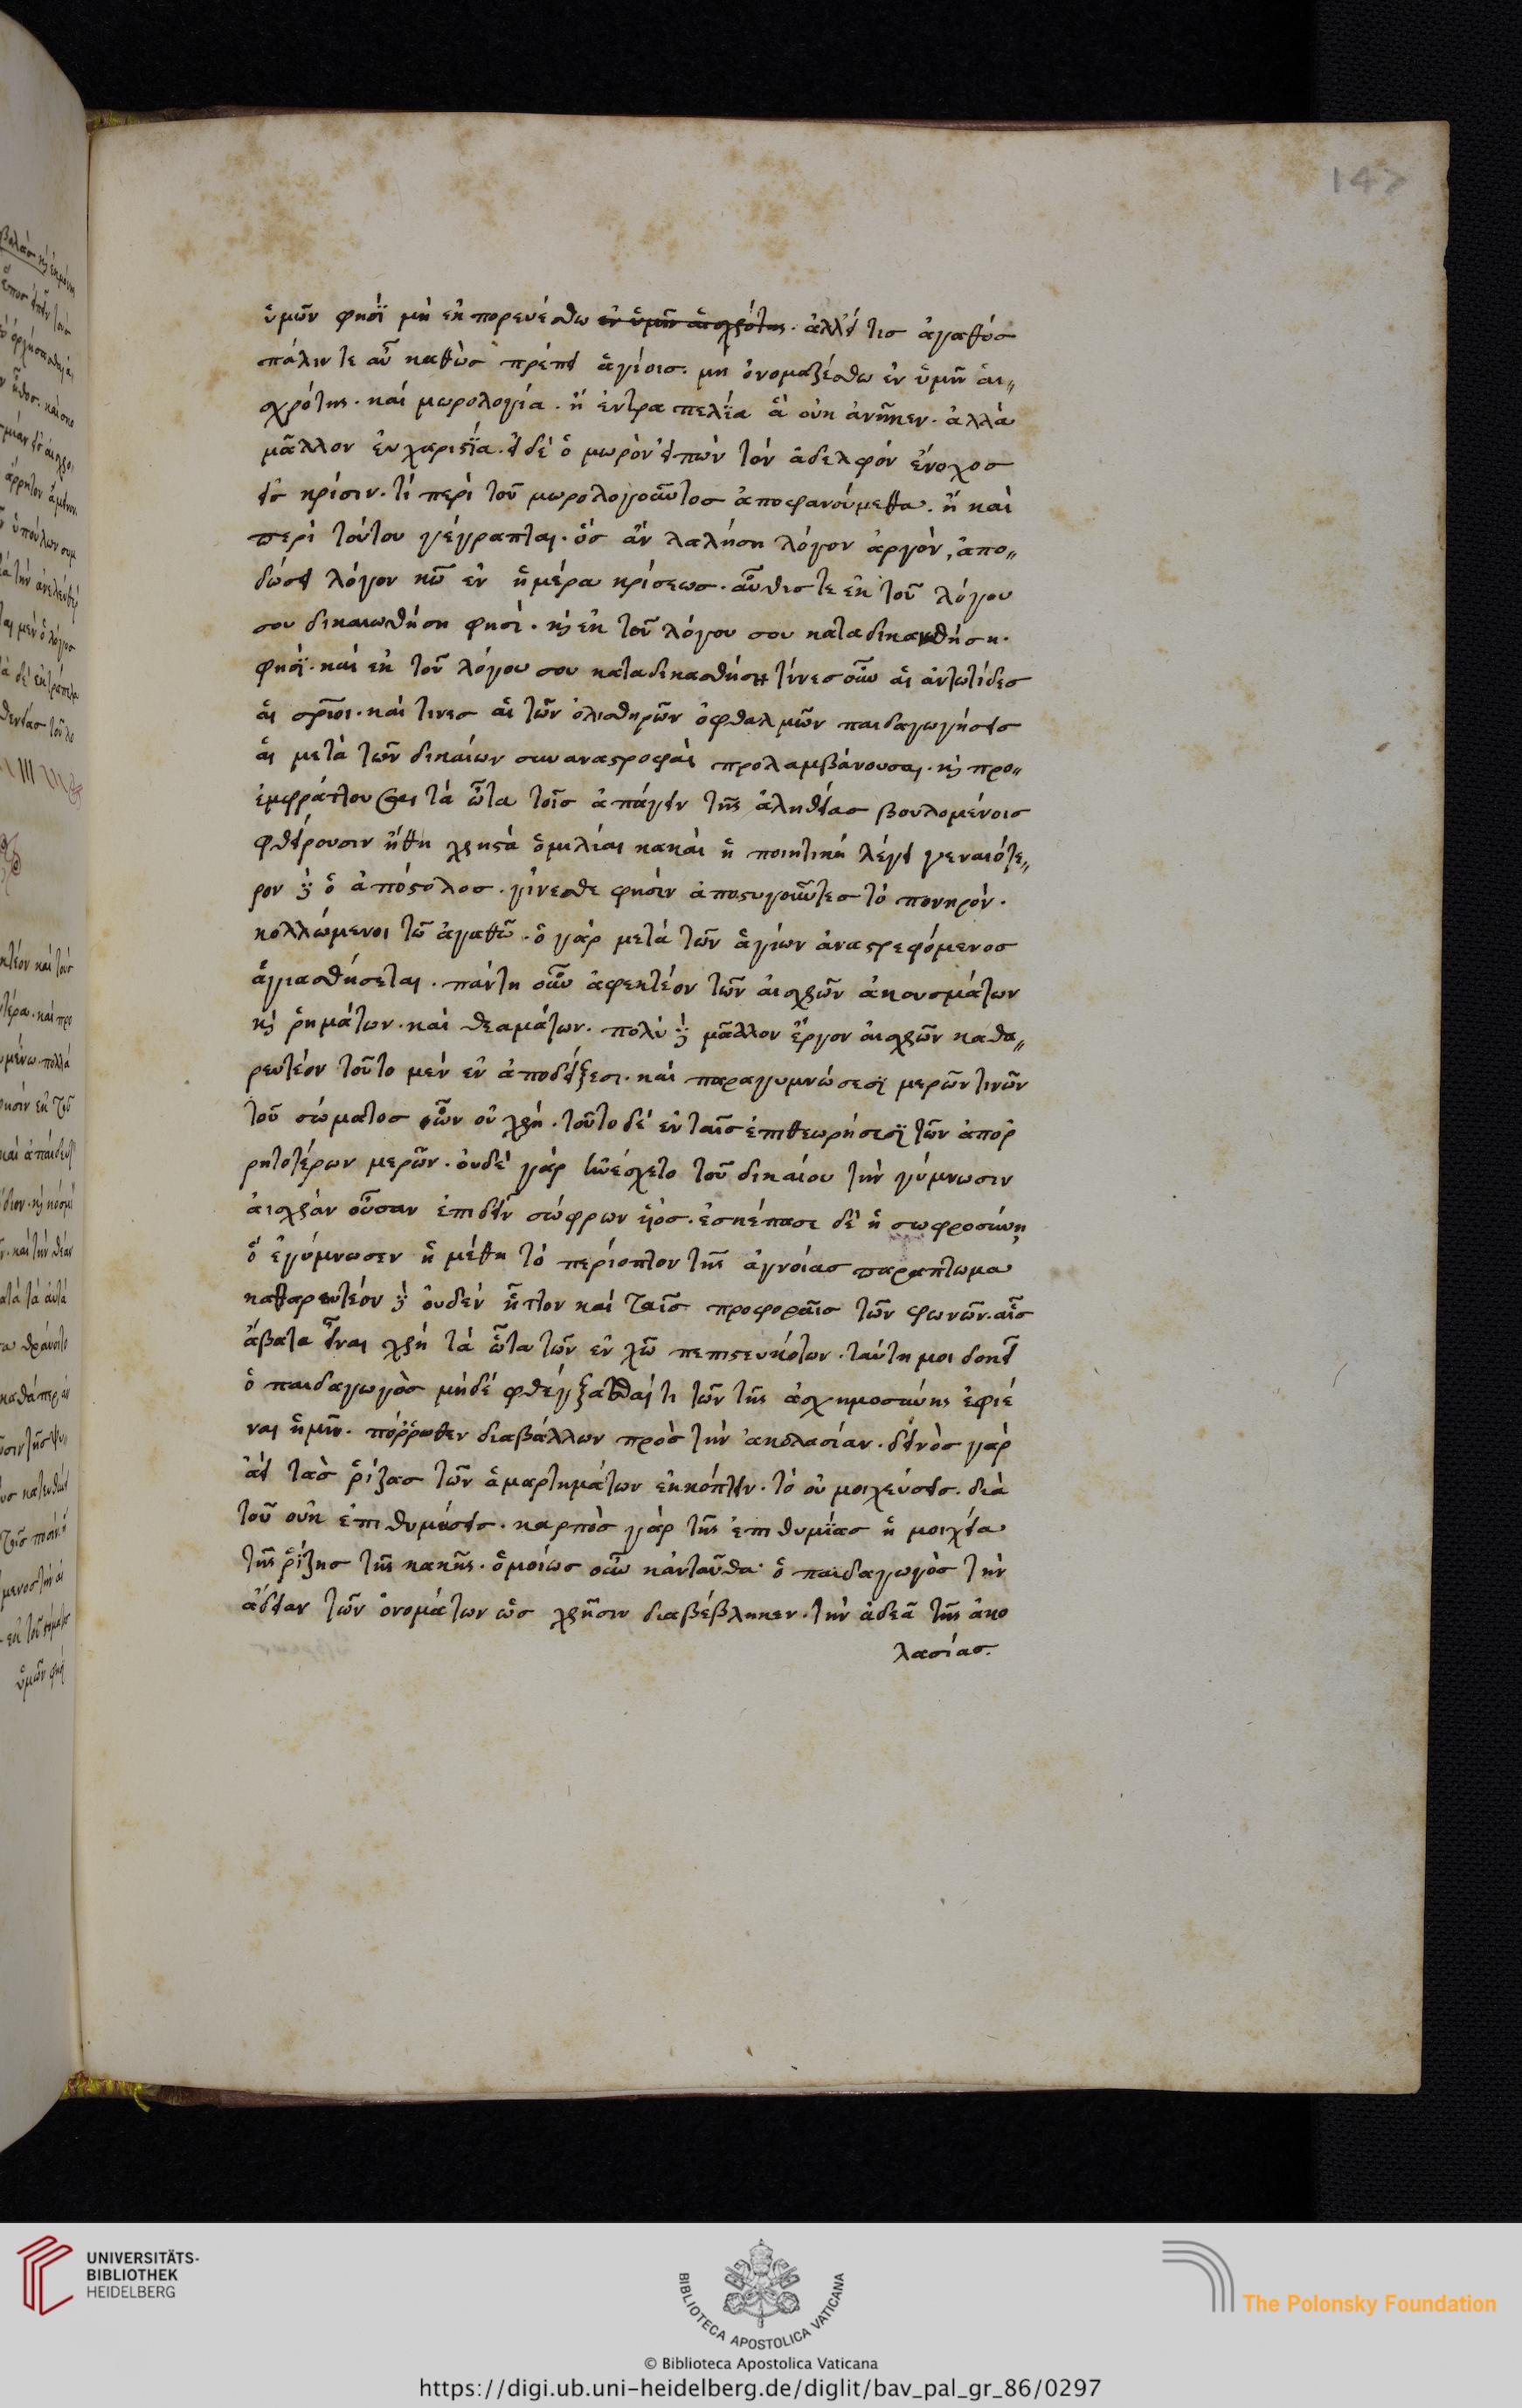 147
ὑμῶν φησὶ μὴ ἐκπορευέσθω ἐν ὑμῖν αἰσχρότης. ἀλλ' εἴ τις ἀγαθός
πάλιν τε αὖ καθὼς πρέπει ἁγίοις. μὴ ὀνομαζέσθω ἐν ὑμῖν αἰ〃
σχρότης. καὶ μωρολογία. ἢ ἐντραπελία ἃ οὐκ ἀνῆκεν. ἀλλὰ
μᾶλλον εὐχαριστία. εἰ δὲ ὁ μωρὸν εἰπὼν τὸν ἀδελφὸν ἔνοχος
εἰς κρίσιν. τί περὶ τοῦ μωρολογοῦντος ἀποφανούμεθα. ἢ καὶ
περὶ τούτου γέγραπται. ὃς ἂν λαλήση λόγον ἀργὸν, ἀπο〃
δώσει λόγον κῶ ἐν ἡμέρα κρίσεως. αὖθις τε ἐκ τοῦ λόγου
σου δικαιωθήση φησὶ. κὶ ἐκ τοῦ λόγου σου καταδικασθήση.
φησὶ. καὶ ἐκ τοῦ λόγου σου καταδικασθήση τίνες οὖν αἱ ἀντωτίδες
αἱ σρῖοι. καὶ τινες αἱ τῶν ὀλισθηρῶν ὀφθαλμῶν παιδαγωγήσεις
αἱ μετὰ τῶν δικαίων συναναστροφαὶ προλαμβάνουσαι. κὶ προ〃
εμφράττουσαι τὰ ὦτα τοῖς ἀπάγειν τῆς ἀληθείας βουλομένοις
φθείρουσιν ἤθη χρηστὰ ὁμιλίαι κακαὶ ἡ ποιητικὴ λέγει γεναιότε〃
ρον δὲ ὁ ἀπόστολος. γίνεσθε φησὶν ἀποστυγοῦντες τὸ πονηρόν.
κολλώμενοι τῶ ἀγαθῶ. ὁ γὰρ μετὰ τῶν ἁγίων ἀναστρεφόμενος
ἁγιασθήσεται. πάντη οὖν ἀφεκτέον τῶν αἰσχρῶν ἀκουσμάτων
κὶ ῥημάτων. καὶ θεαμάτων. πολὺ δὲ μᾶλλον ἔργον αἰσχρῶν καθα〃
ρευτέον τοῦτο μὲν ἐν ἀποδείξεσι. καὶ παραγυμνώσεσϊ μερῶν τινῶν
τοῦ σώματος ὧν οὐ χρὴ. τοῦτο δὲ ἐν ταῖς ἐπιθεωρήσεσϊ τῶν ἀπορ
ρητοτέρων μερῶν. οὐδὲ γὰρ ἠνέσχετο τοῦ δικαίου τὴν γύμνωσιν
αἰσχρὰν οὖσαν ἐπιδεῖν σώφρων ὑιός. ἐσκέπασε δὲ ἡ σωφροσύνη
ὃ ἐγύμνωσεν ἡ μέθη τὸ περίοπτον τῆς ἀγνοίας παραπτωμα
καθαρευτέον δὲ οὐδὲν ἧττον καὶ ταῖς προφοραῖς τῶν φωνῶν. αἷς
ἄβατα εἶναι χρὴ τὰ ὦτα τῶν ἐν χῶ πεπιστευκότων. ταύτη μοι δοκεῖ
ὁ παιδαγωγὸς μηδὲ φθέγξασθαί τι τῶν τῆς ἀσχημοσύνης ἐφιέ
ναι ἡμῖν. πόρρωθεν διαβάλλων πρὸς τὴν ἀκολασίαν. δεινὸς γὰρ
ἀεὶ τὰς ῥίζας τῶν ἁμαρτημάτων ἐκκόπτειν. τὸ οὐ μοιχεύσεις. διὰ
τοῦ οὐκ ἐπιθυμήσεις. καρπὸς γὰρ τῆς ἐπιθυμίας ἡ μοιχεία
τῆς ῥίζης τῆς κακῆς. ὁμοίως οὖν κἀνταῦθα ὁ παιδαγωγὸς τὴν
ἄδειαν τῶν ὀνομάτων ὡς χρῆσιν διαβέβληκεν. τὴν ἀδεᾶ τῆς ἀκο
λασίας.
UNIVERSITÄTS-
BIBLIOTHEK
HEIDELBERG
BIBLIOTECA APOSTOLICA VATICANA
The Polonsky Foundation
© Biblioteca Apostolica Vaticana
https://digi.ub.uni-heidelberg.de/diglit/bav_pal_gr_86/0297